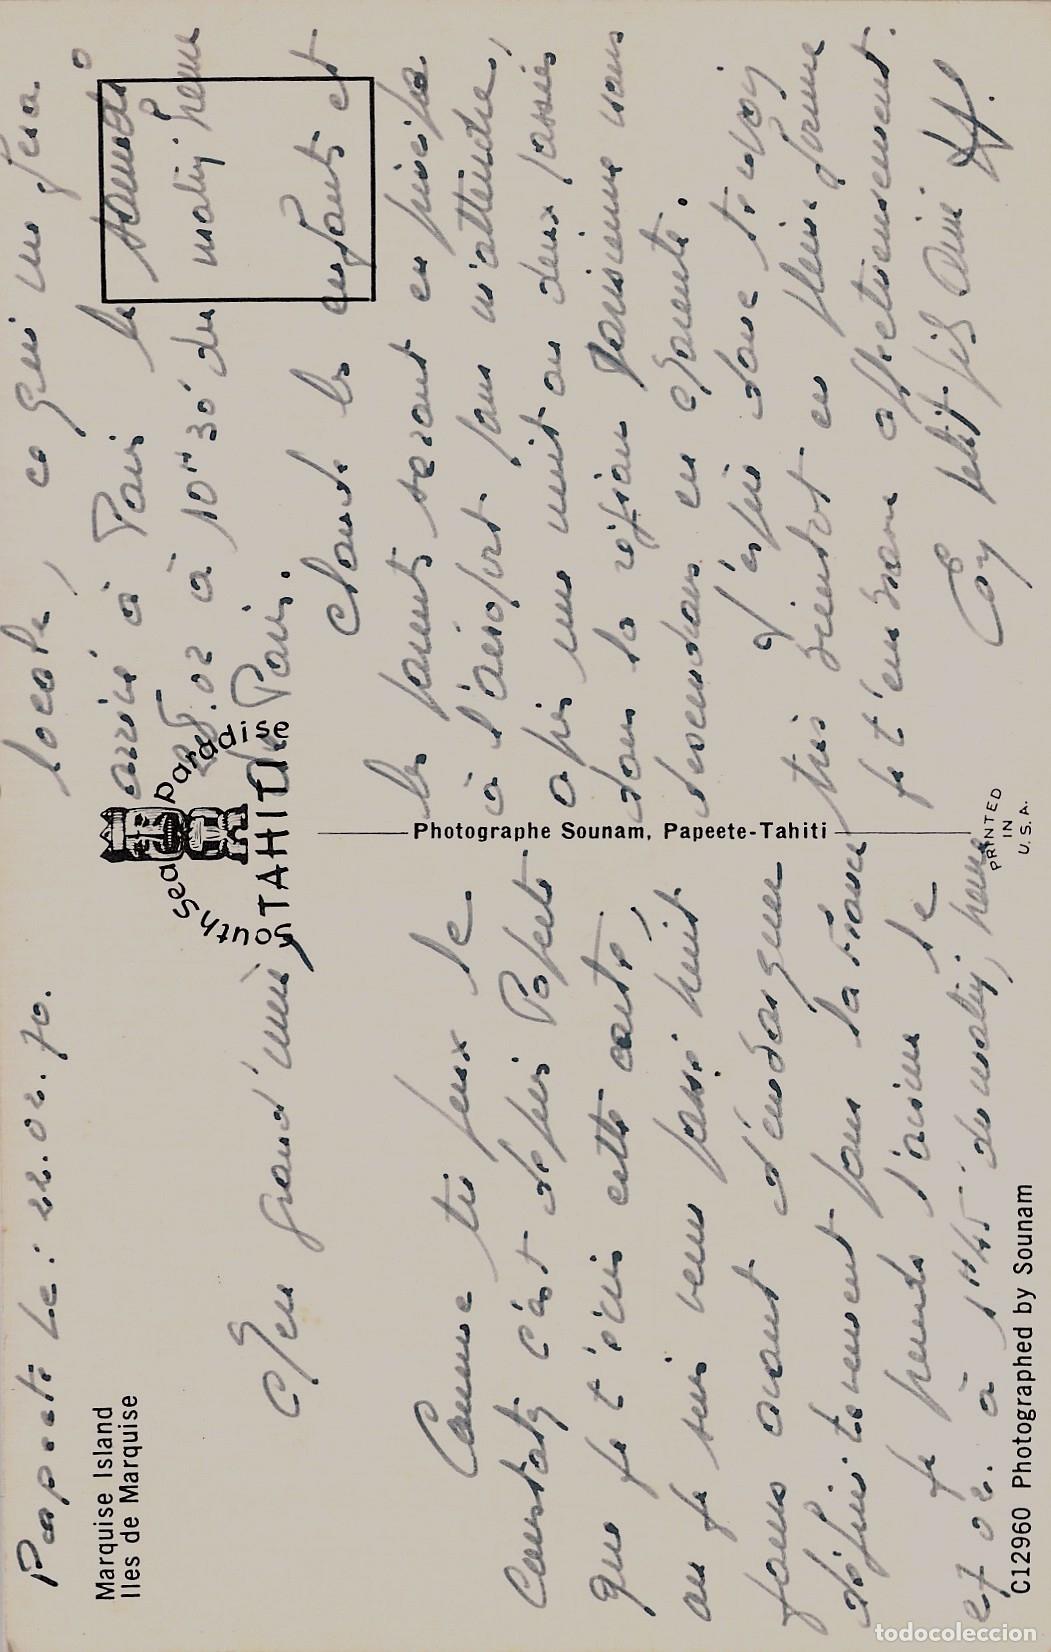 Papeete Le: 22.02.70.
Marquise Island
Iles de Marquise
Ma grand'mère
Comme tu peux le
constater c'est depuis Papeete
que je t'écris cette carte,
ou je suis venu passé huit
jours avant d'embarquer
définitivement pour la France
je prends l'avion le
27 02. à 1H45 du matin, heure
C12960 Photographed by Sounam
South Sea Paradise
TAHITI
Photographe Sounam, Papeete-Tahiti
PRINTED
IN
U.S.A.
locale, ce qui me fera
arrivé à Paris le samedi
28.02 à 10H30 du matin heure
de Paris.
Claude les enfants et
les parents seront en principe
à l'aéroport pour m'attendre,
après une nuit ou deux passées
dans la région parisienne nous
descendrons en Charente.
J'espère donc te voir
très bientôt en pleine forme
je t'embrasse affectueusement.
Ton petit-fils Aimé
todocoleccion